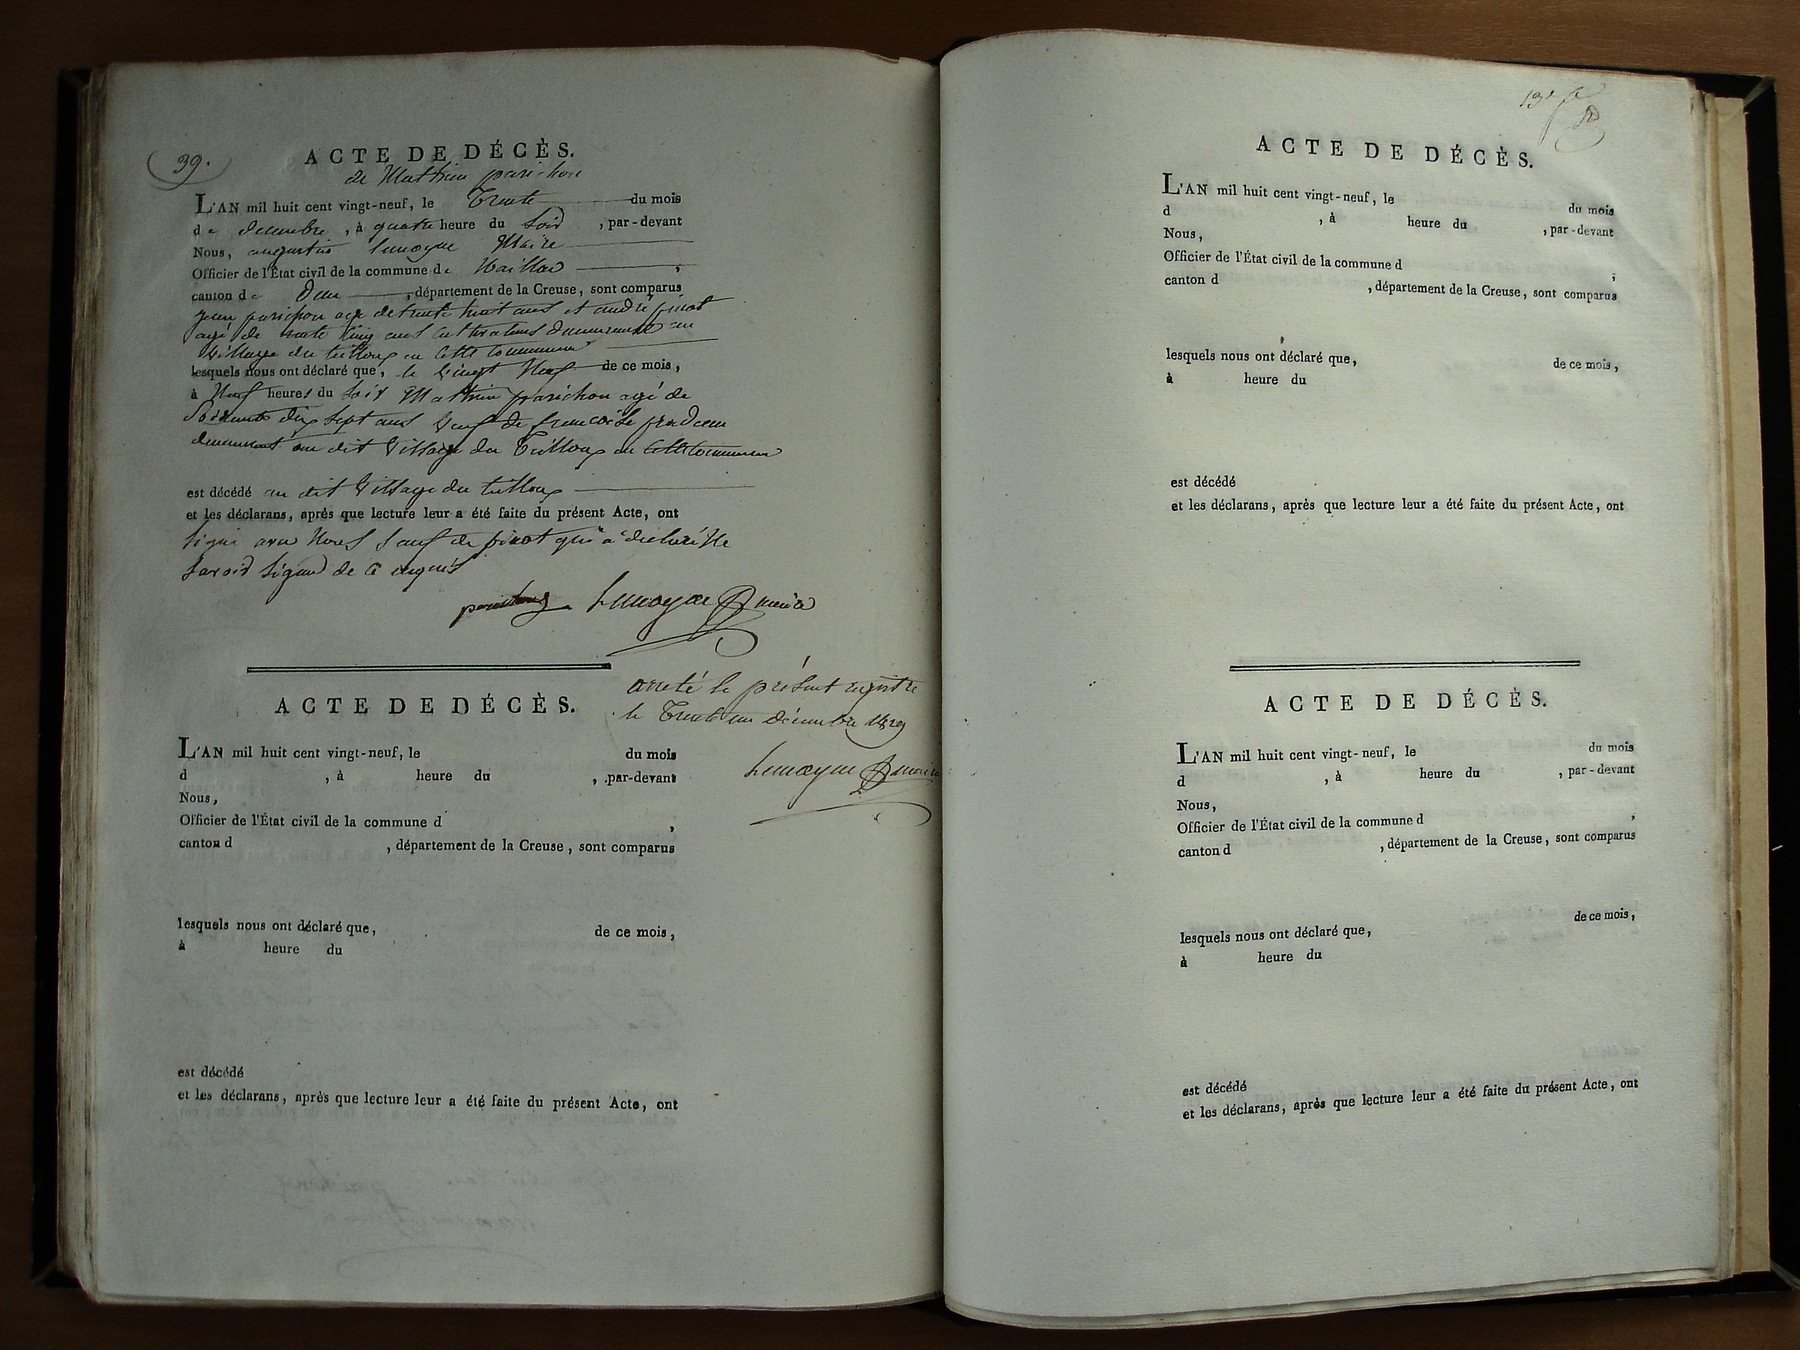 39.
ACTE DE DÉCÈS.
de Mathieu parichon
L'AN mil huit cent vingt-neuf, le Trente du mois
de decembre, à quatre heure du Soir, par-devant
Nous, augustin lemoyne Maire
Officier de l'État civil de la commune de Naillac,
canton de Dun, département de la Creuse, sont comparus
jean parichon age de trente huit ans et andré pinot
agé de trente cinq ans cultivateurs demeurant au
village du tilloux en cette commune
lesquels nous ont déclaré que, le vingt Neuf de ce mois,
à Neuf heures du soir Mathieu parichon agé de
soixante dix sept ans veuf de francoise
demeurant au dit village du Tilloux en cette commune
est décédé au dit village du tilloux
et les déclarans, après que lecture leur a été faite du présent Acte, ont
signé avec Nous sauf de pinot qui a declaré Ne
savoir signer de ce enquis
parichon Lemoyne maire
ACTE DE DÉCÈS.
arreté le présent registre
le Trente un décembre 1829
Lemoyne maire
L'AN mil huit cent vingt-neuf, le du mois
d , à heure du , par-devant
Nous,
Officier de l'État civil de la commune d ,
canton d , département de la Creuse, sont comparus
lesquels nous ont déclaré que, de ce mois,
à heure du
est décédé
et les déclarans, après que lecture leur a été faite du présent Acte, ont
ACTE DE DÉCÈS.
L'AN mil huit cent vingt-neuf, le du mois
d , à heure du , par-devant
Nous,
Officier de l'État civil de la commune d ,
canton d , département de la Creuse, sont comparus
lesquels nous ont déclaré que, de ce mois,
à heure du
est décédé
et les déclarans, après que lecture leur a été faite du présent Acte, ont
ACTE DE DÉCÈS.
L'AN mil huit cent vingt-neuf, le du mois
d , à heure du , par-devant
Nous,
Officier de l'État civil de la commune d ,
canton d , département de la Creuse, sont comparus
lesquels nous ont déclaré que, de ce mois,
à heure du
est décédé
et les déclarans, après que lecture leur a été faite du présent Acte, ont